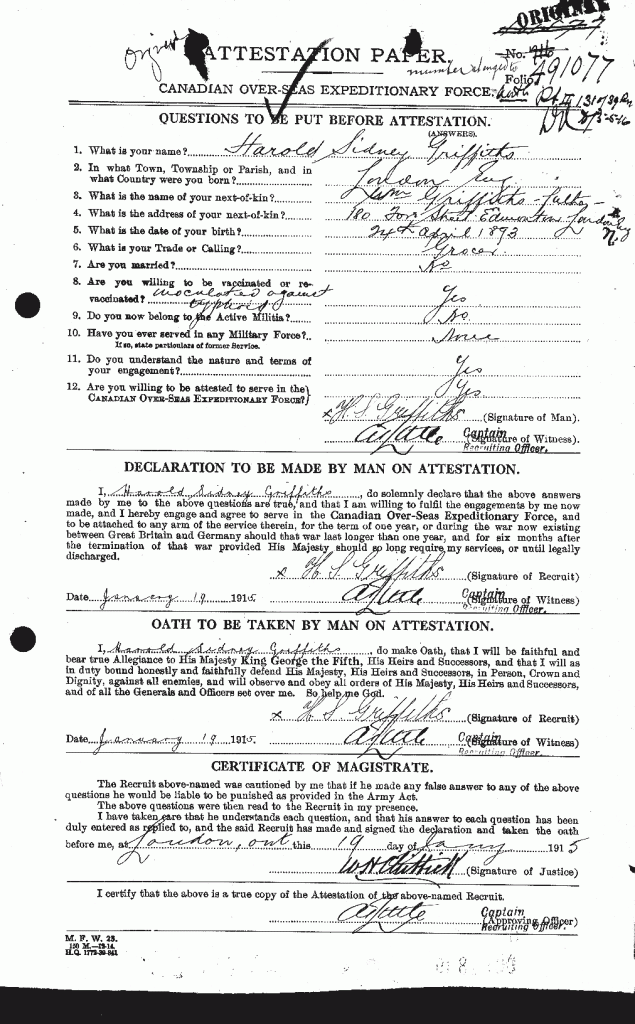 ORIGINAL
ATTESTATION PAPER.
No.
Folio.
491077
CANADIAN OVER-SEAS EXPEDITIONARY FORCE.
QUESTIONS TO BE PUT BEFORE ATTESTATION.
(ANSWERS).
1. What is your name? Harold Sidney Griffiths
2. In what Town, Township or Parish, and in
what Country were you born? London Eng
3. What is the name of your next-of-kin? Wm Griffiths - Father -
4. What is the address of your next-of-kin? 180 Street Edmonton London
5. What is the date of your birth? 24th April 1893
6. What is your Trade or Calling? Grocer
7. Are you married? No
8. Are you willing to be vaccinated or re-
vaccinated? inoculated against typhoid Yes
9. Do you now belong to the Active Militia? No
10. Have you ever served in any Military Force? None
If so, state particulars of former Service.
11. Do you understand the nature and terms of
your engagement? Yes
12. Are you willing to be attested to serve in the
CANADIAN OVER-SEAS EXPEDITIONARY FORCE? Yes
x H. S. Griffiths (Signature of Man).
Captain
(Signature of Witness).
Recruiting Officer.
DECLARATION TO BE MADE BY MAN ON ATTESTATION.
I, Harold Sidney Griffiths, do solemnly declare that the above answers
made by me to the above questions are true, and that I am willing to fulfil the engagements by me now
made, and I hereby engage and agree to serve in the Canadian Over-Seas Expeditionary Force, and
to be attached to any arm of the service therein, for the term of one year, or during the war now existing
between Great Britain and Germany should that war last longer than one year, and for six months after
the termination of that war provided His Majesty should so long require my services, or until legally
discharged.
x H S Griffiths (Signature of Recruit)
Captain
Date January 19 1915 (Signature of Witness)
Recruiting Officer.
OATH TO BE TAKEN BY MAN ON ATTESTATION.
I, Harold Sidney Griffiths, do make Oath, that I will be faithful and
bear true Allegiance to His Majesty King George the Fifth, His Heirs and Successors, and that I will as
in duty bound honestly and faithfully defend His Majesty, His Heirs and Successors, in Person, Crown and
Dignity, against all enemies, and will observe and obey all orders of His Majesty, His Heirs and Successors,
and of all the Generals and Officers set over me. So help me God.
x H S Griffiths (Signature of Recruit)
Captain
Date January 19 1915 (Signature of Witness)
Recruiting Officer.
CERTIFICATE OF MAGISTRATE.
The Recruit above-named was cautioned by me that if he made any false answer to any of the above
questions he would be liable to be punished as provided in the Army Act.
The above questions were then read to the Recruit in my presence.
I have taken care that he understands each question, and that his answer to each question has been
duly entered as replied to, and the said Recruit has made and signed the declaration and taken the oath
before me, at London, Ont this 19 day of Jany 1915
(Signature of Justice)
I certify that the above is a true copy of the Attestation of the above-named Recruit.
Captain
(Approving Officer)
Recruiting Officer.
M. F. W. 23.
150 M.—12-14.
H.Q. 1772-39-841.